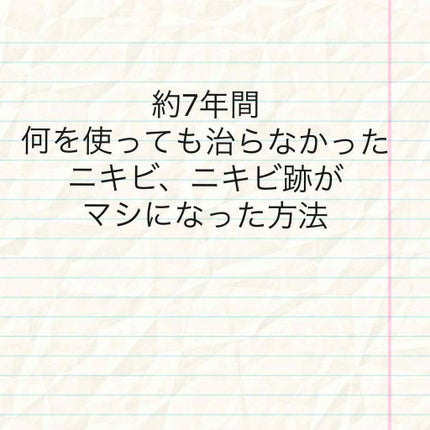 約7年間
何を使っても治らなかった
ニキビ、ニキビ跡が
マシになった方法